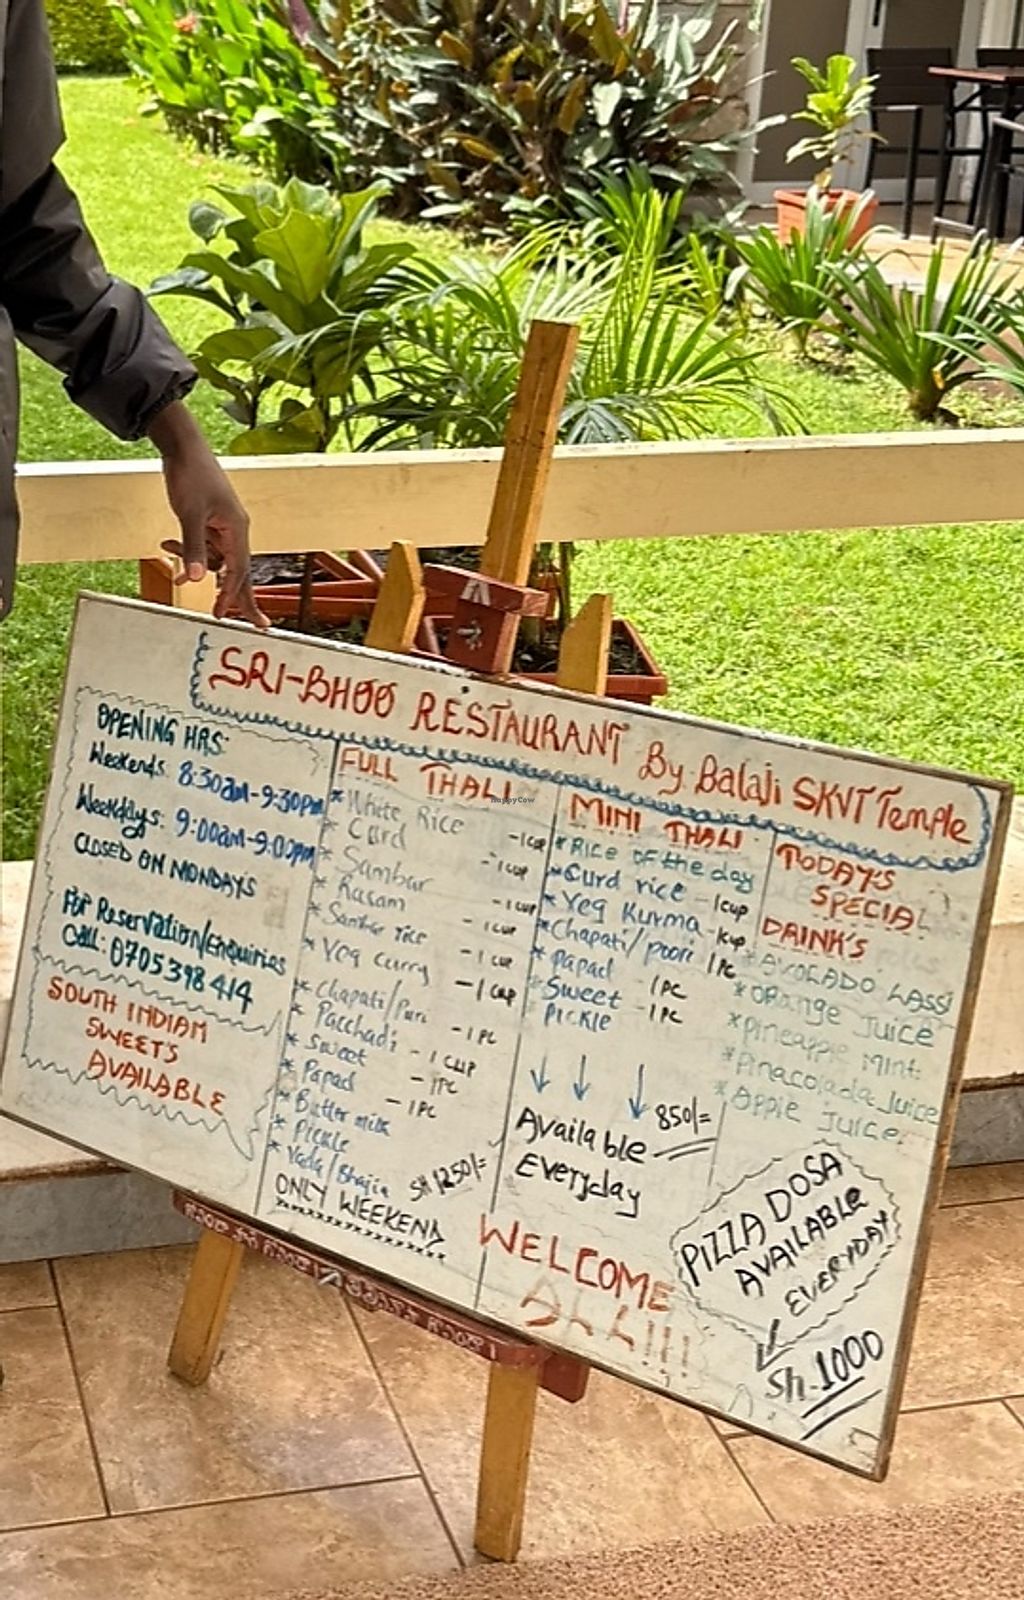 SRI-BHOO RESTAURANT By Balaji SKVT Temple
OPENING HRS:
Weekends: 8:30am-9:30pm
Weekdays: 9:00am-9:00pm
CLOSED ON MONDAYS
For Reservation/Enquiries
Call: 0705 398 414
SOUTH INDIAN
SWEET'S
AVAILABLE
FULL THALI
* White Rice -1CUP
* Curd -1CUP
* Sambar -1CUP
* Rasam -1CUP
* Sambar rice -1CUP
* Veg curry -1CUP
* Chapati/Puri -1PC
* Pacchadi -1CUP
* Sweet -1PC
* Papad -1PC
* Butter milk
* Pickle
* Vada/Bhajia
Sh 1250/=
ONLY WEEKEND
MINI THALI
* RICE OF the day
* Curd rice -1CUP
* Veg Kurma -1CUP
* Chapati/poori 1PC
* Papad -1PC
* Sweet -1PC
PICKLE
850/=
Available
Everyday
WELCOME
ALL!!!
TODAY'S
SPECIAL
DRINK'S
* AVOCADO LASSI
* Orange Juice
* Pineapple Mint
* Pinacolada Juice
* Apple Juice
PIZZA DOSA
AVAILABLE
EVERYDAY
Sh-1000
HappyCow